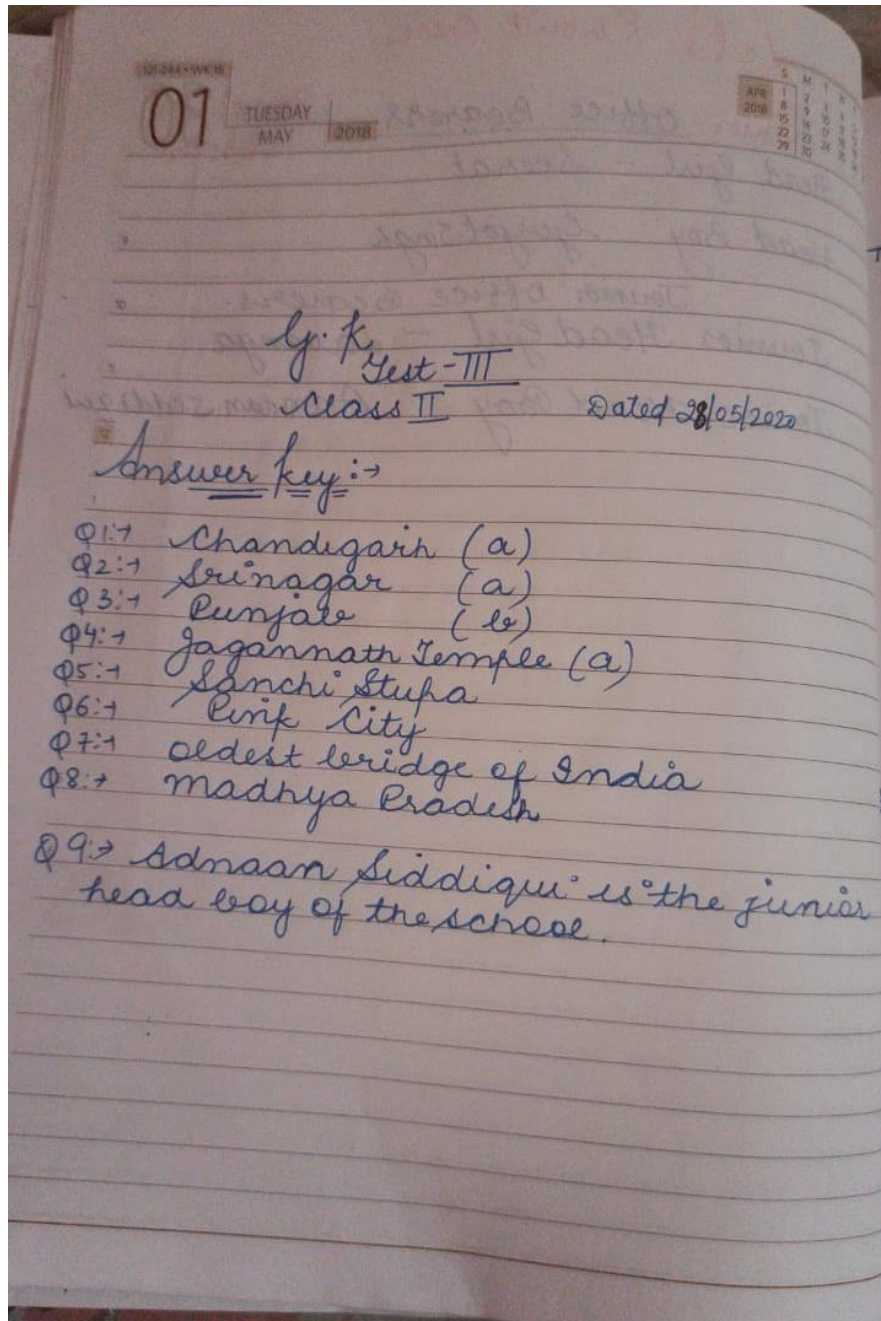 121-244 • WK 18
01 TUESDAY
MAY 2018
APR
2018
S M T W
1 2 3
8 9 10
15 16 17
22 23 24
29 30
G.K
Test-III
Class II Dated 28/05/2020
Answer key:→
Q1:→ Chandigarh (a)
Q2:→ Srinagar (a)
Q3:→ Punjab (b)
Q4:→ Jagannath Temple (a)
Q5:→ Sanchi Stupa
Q6:→ Pink City
Q7:→ oldest bridge of India
Q8:→ Madhya Pradesh
Q9:→ Adnaan Siddiqui is the junior
head boy of the school.